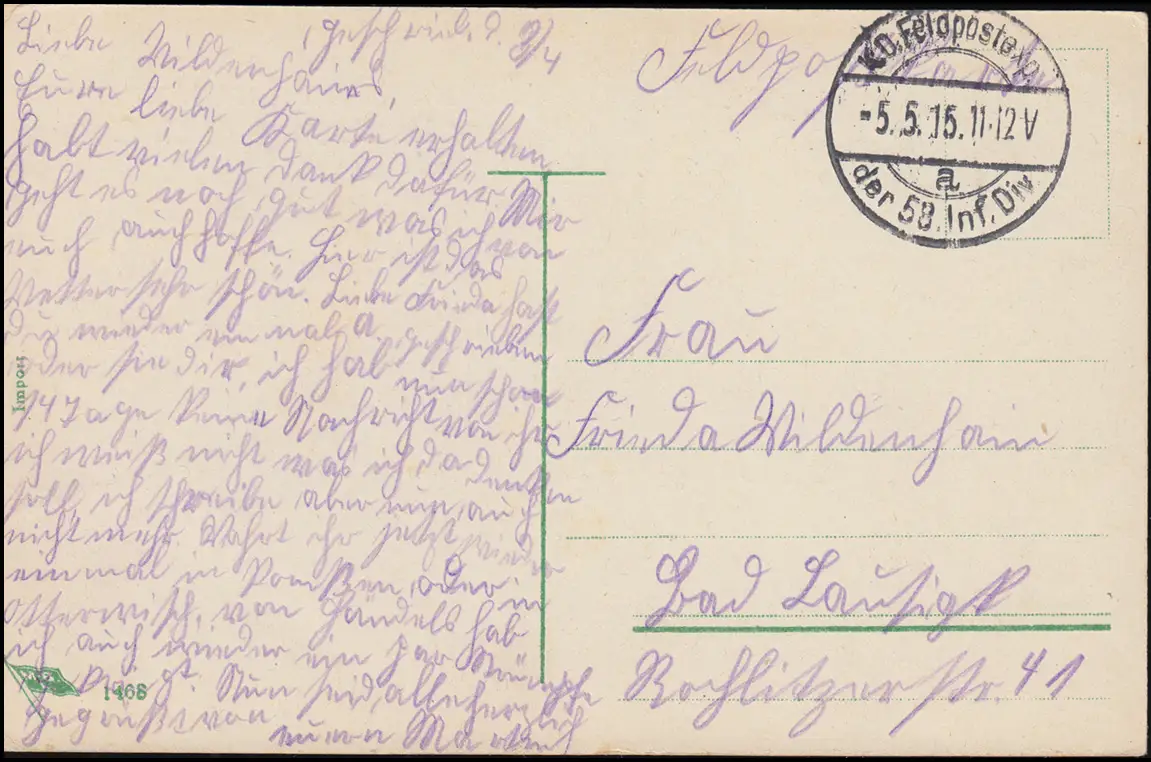 geschrieb. d. 3/4
Liebe Wildenhains,
Eure liebe Karte erhalten
habt vielen Dank dafür. Mir
geht es noch gut was ich von
euch auch hoffe. Hier ist das
Wetter sehr schön. Liebe Frieda hast
du wieder einmal geschrieben
oder sie dir, ich hab nun schon
14 Tage keine Nachricht von ihr
ich weiß nicht was ich da denken
soll, ich schreibe aber nun auch
nicht mehr. Wahrt ihr jetzt wieder
einmal in Pomßen, oder in
Otterwisch, von Händels hab
ich auch wieder ein par
gekrigt. Nun seid alle herzlich
gegrüßt von
euern
Feldpostkarte
K.D. Feldpostexp.
-5.5.15.11-12V
a.
der 58. Inf. Div.
Frau
Frieda Wildenhain
Bad Lausigk
Rochlitzerstr. 41
Import
1468